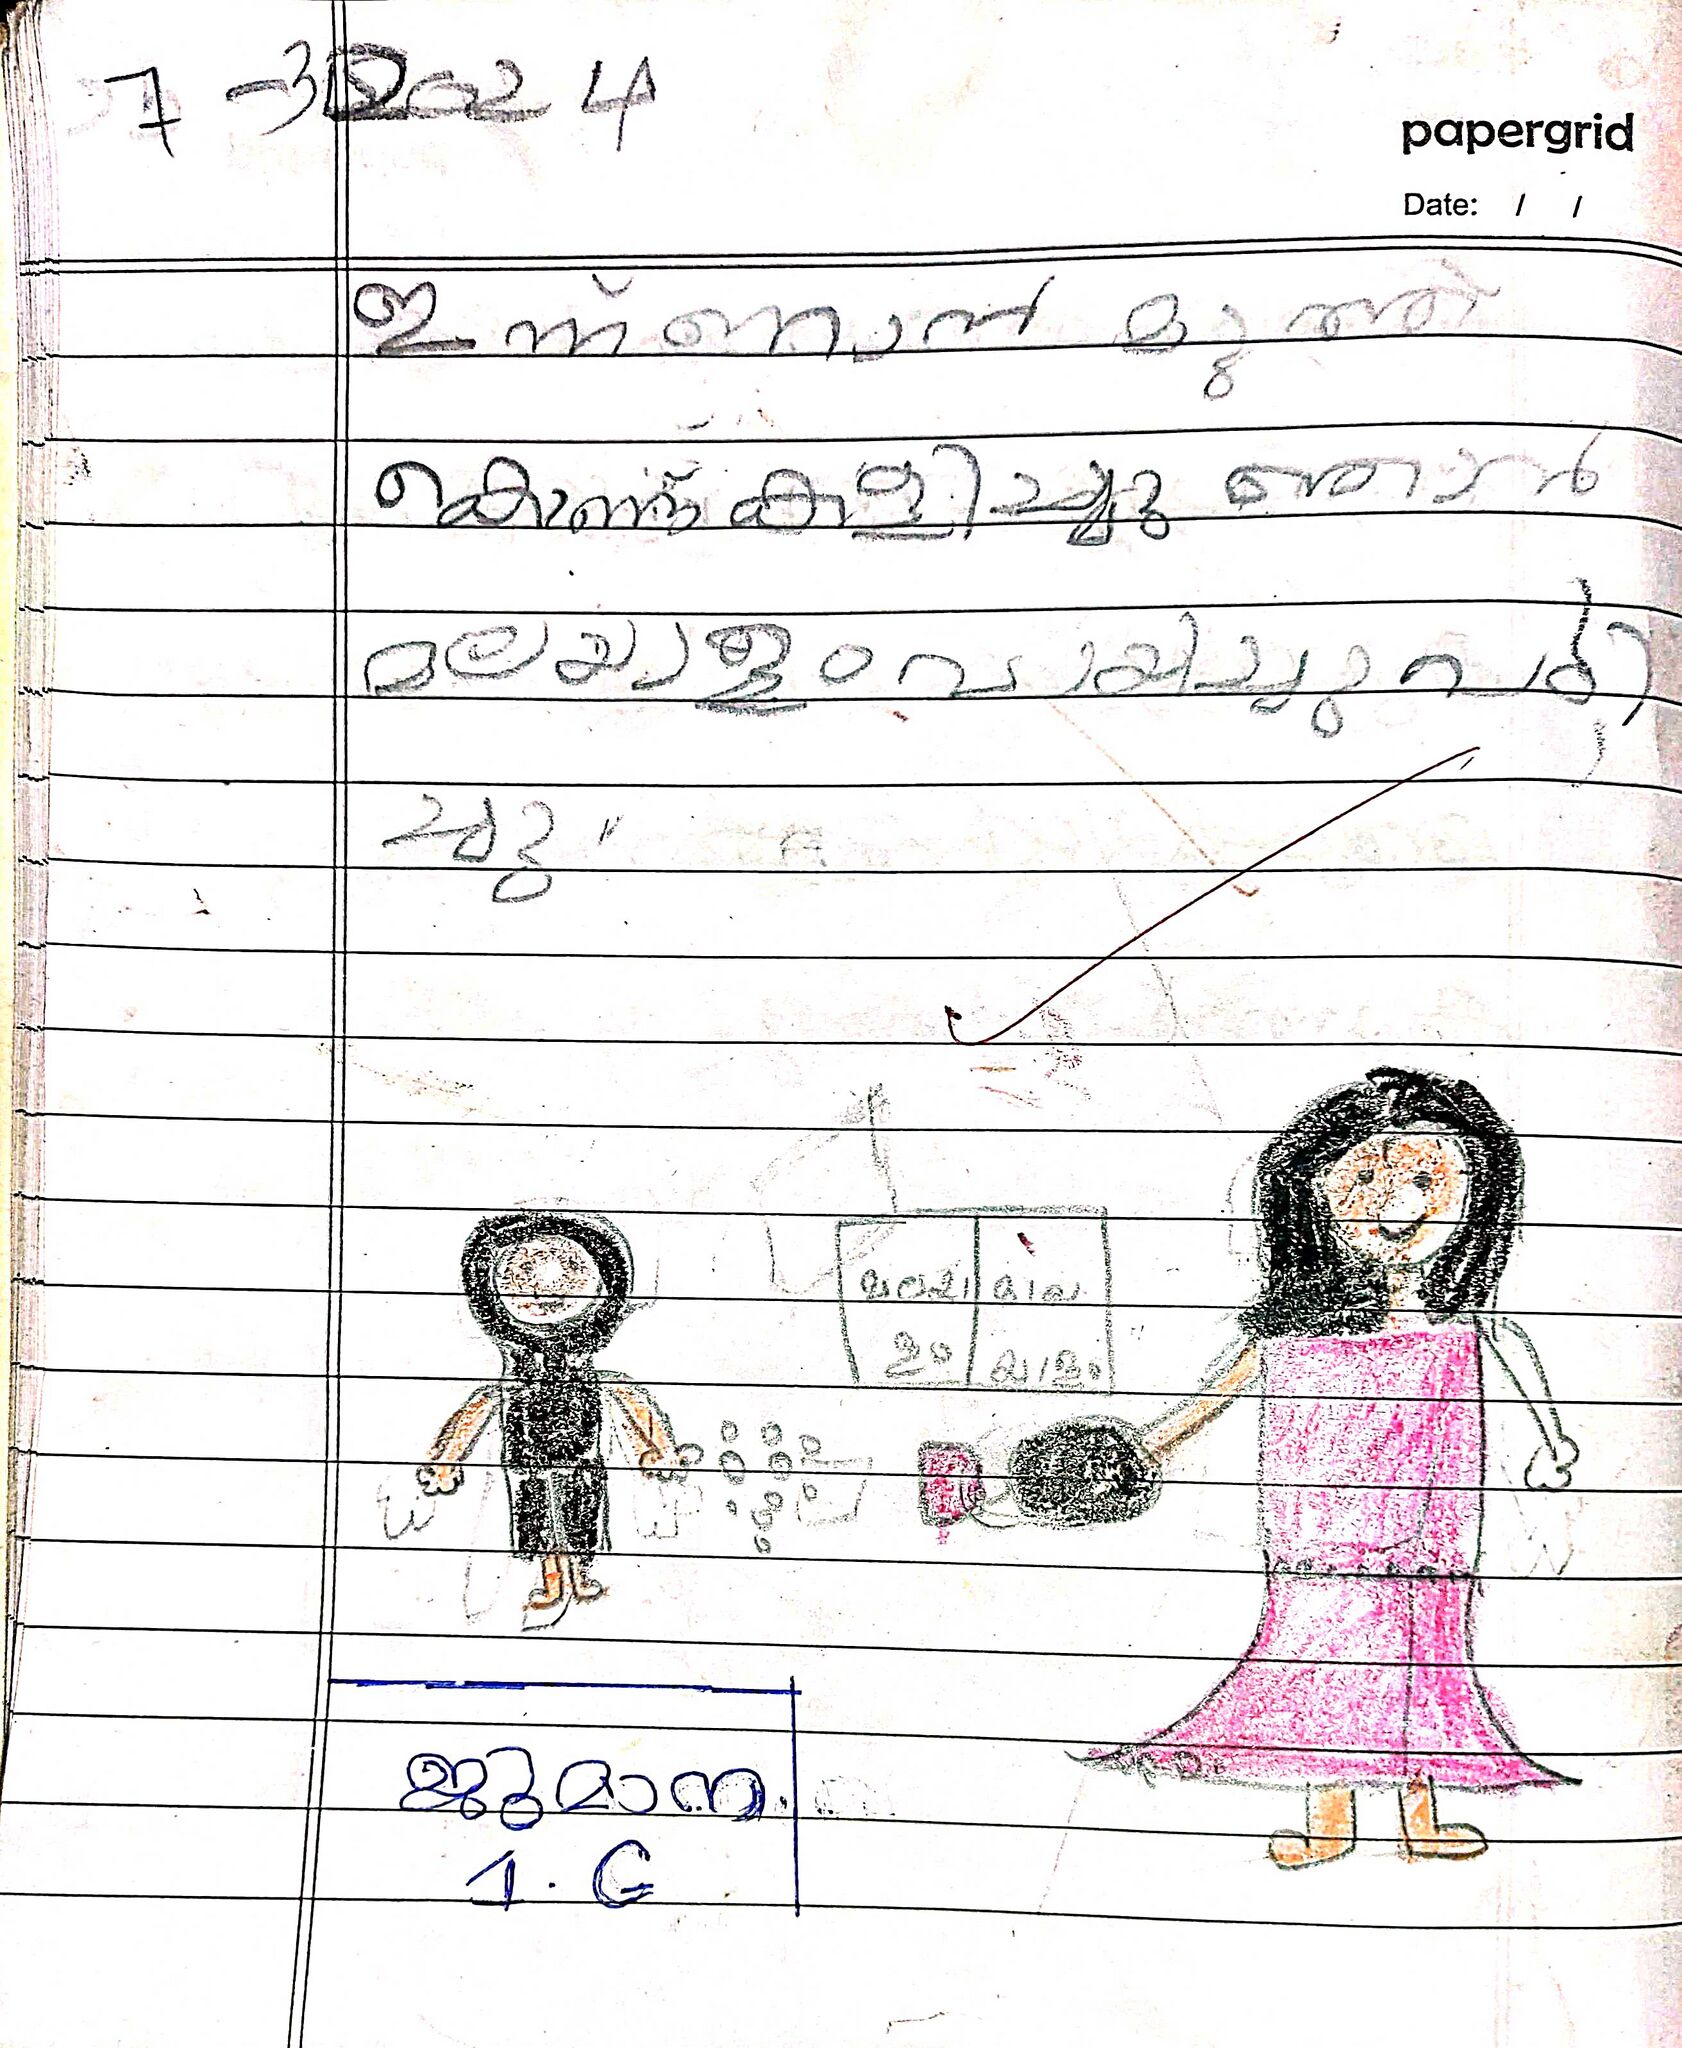 7-3 2024
papergrid
Date: / /
ഇന്ന് ഞാൻ മുത്ത്
കൊണ്ട് കളിച്ചു ഞാൻ
മലയാളം വായിച്ചു പഠി
ച്ചു"
മലയാ
ളം
മല
യാളം
ജുമാന
1. C